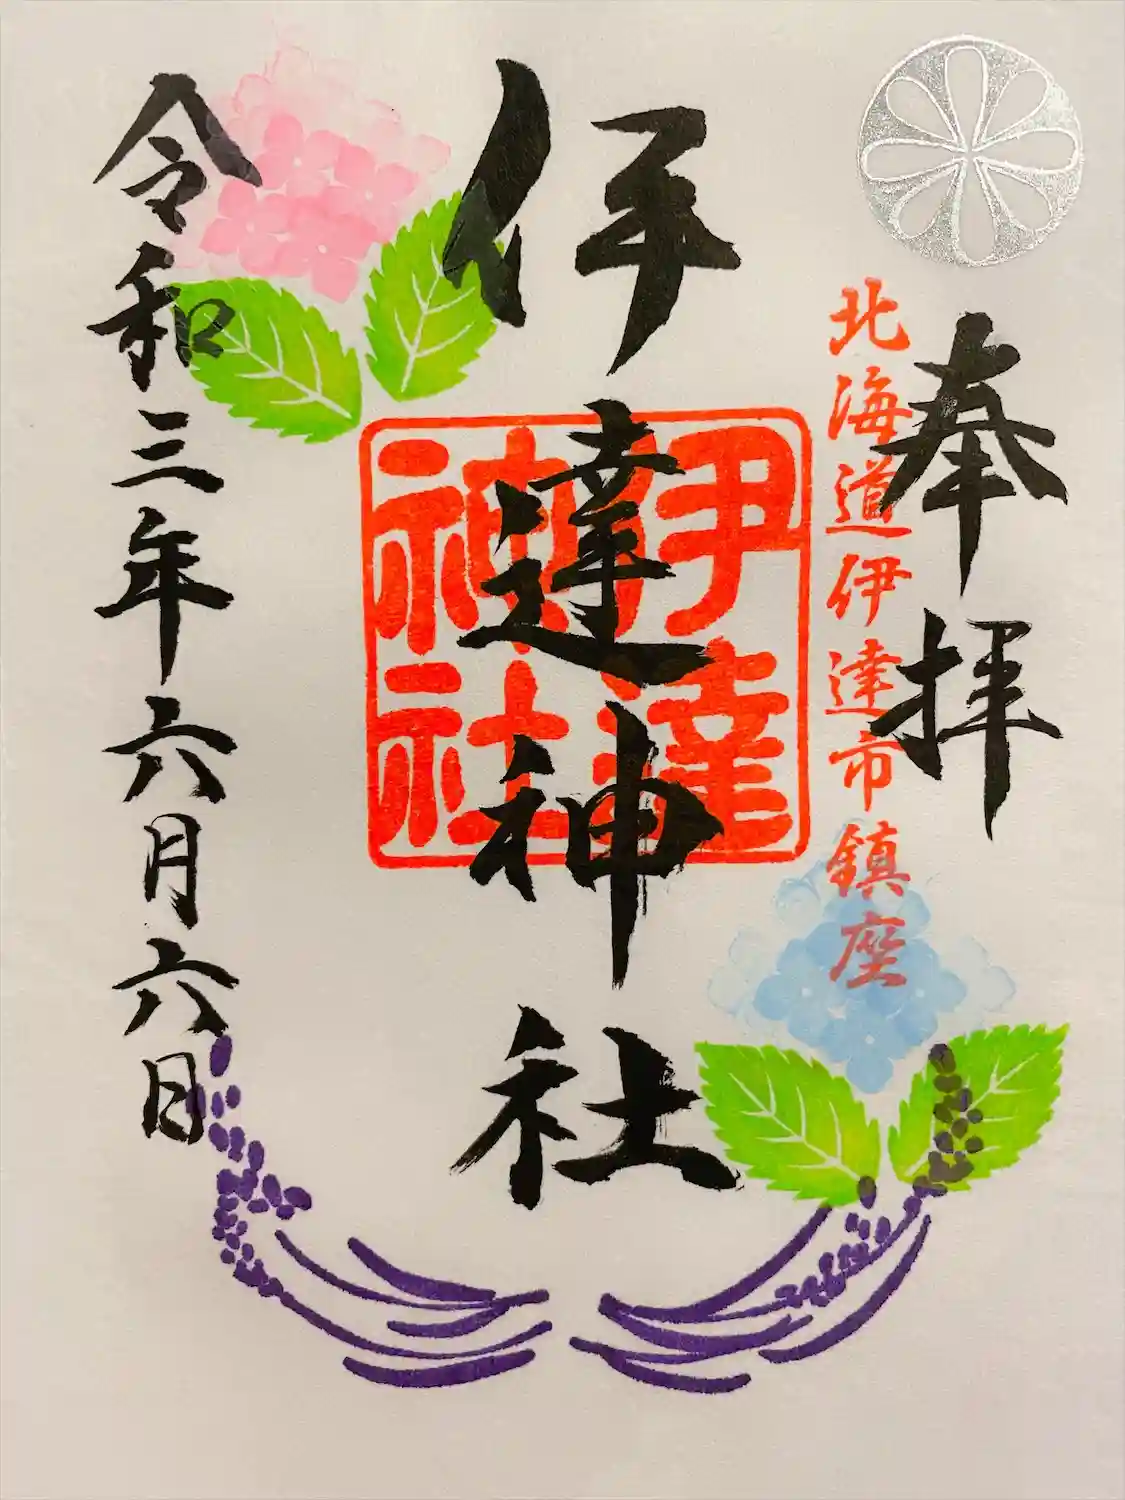 奉拝
北海道伊達市鎮座
伊達神社
伊達
神社
令和三年六月六日